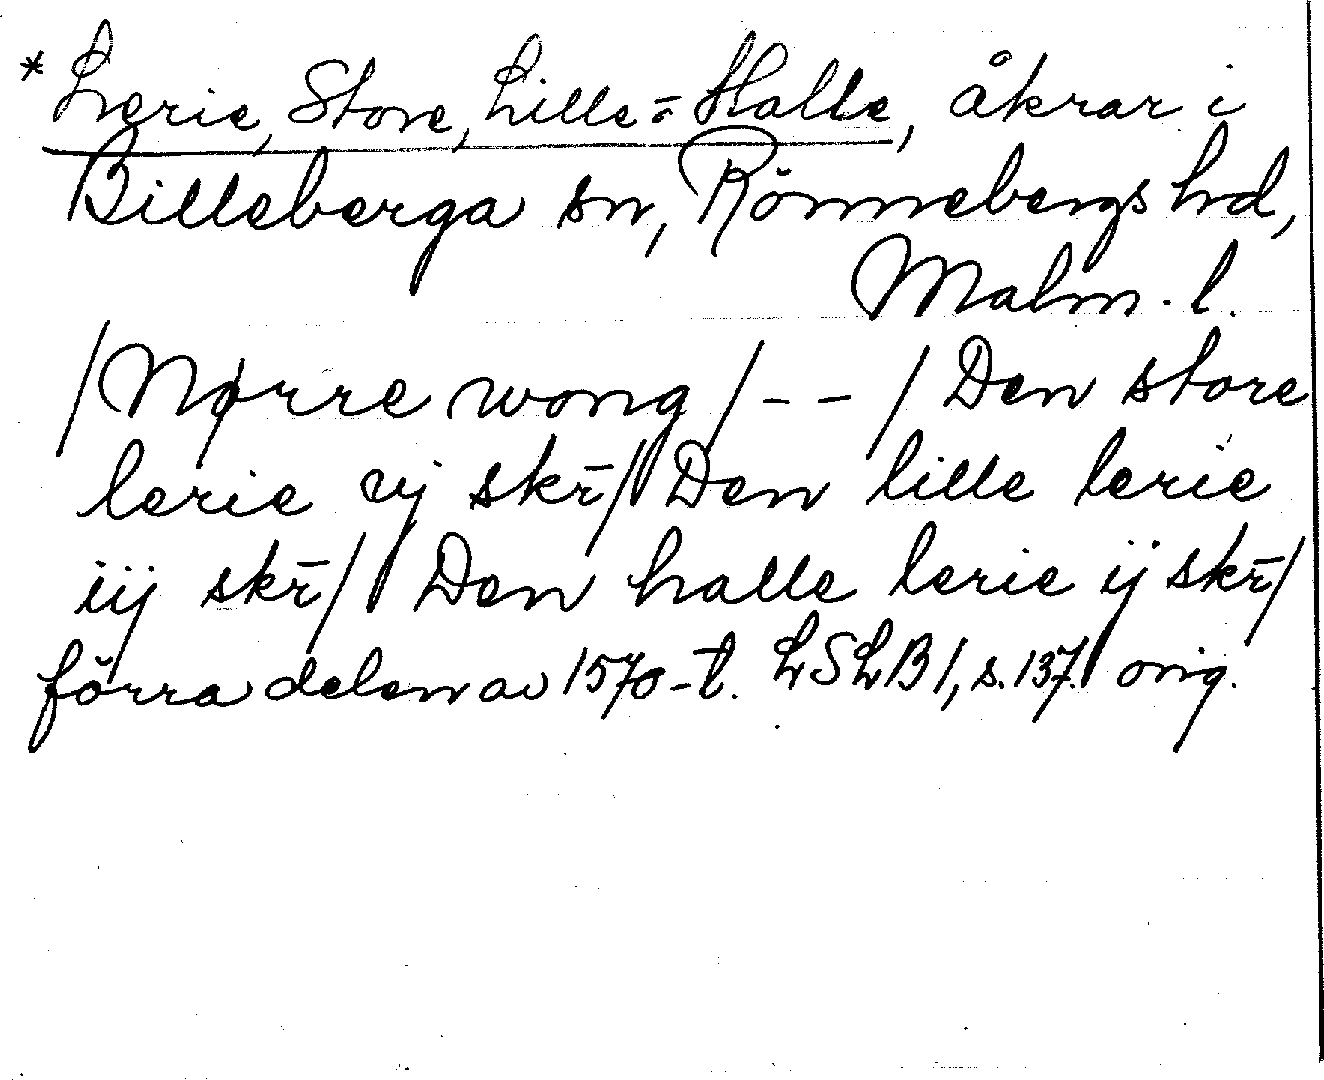 * Lerie, Store, Lille = Halle, åkrar i
Billeberga sn, Rönnebergs hd,
Malm. l.
/Nørre wong/ - - / Den store
lerie vj skr̄/ Den lille lerie
iij skr̄/ Den halle lerie ij skr̄/
förra delen av 1570-t. LSLB 1, s. 137. orig.